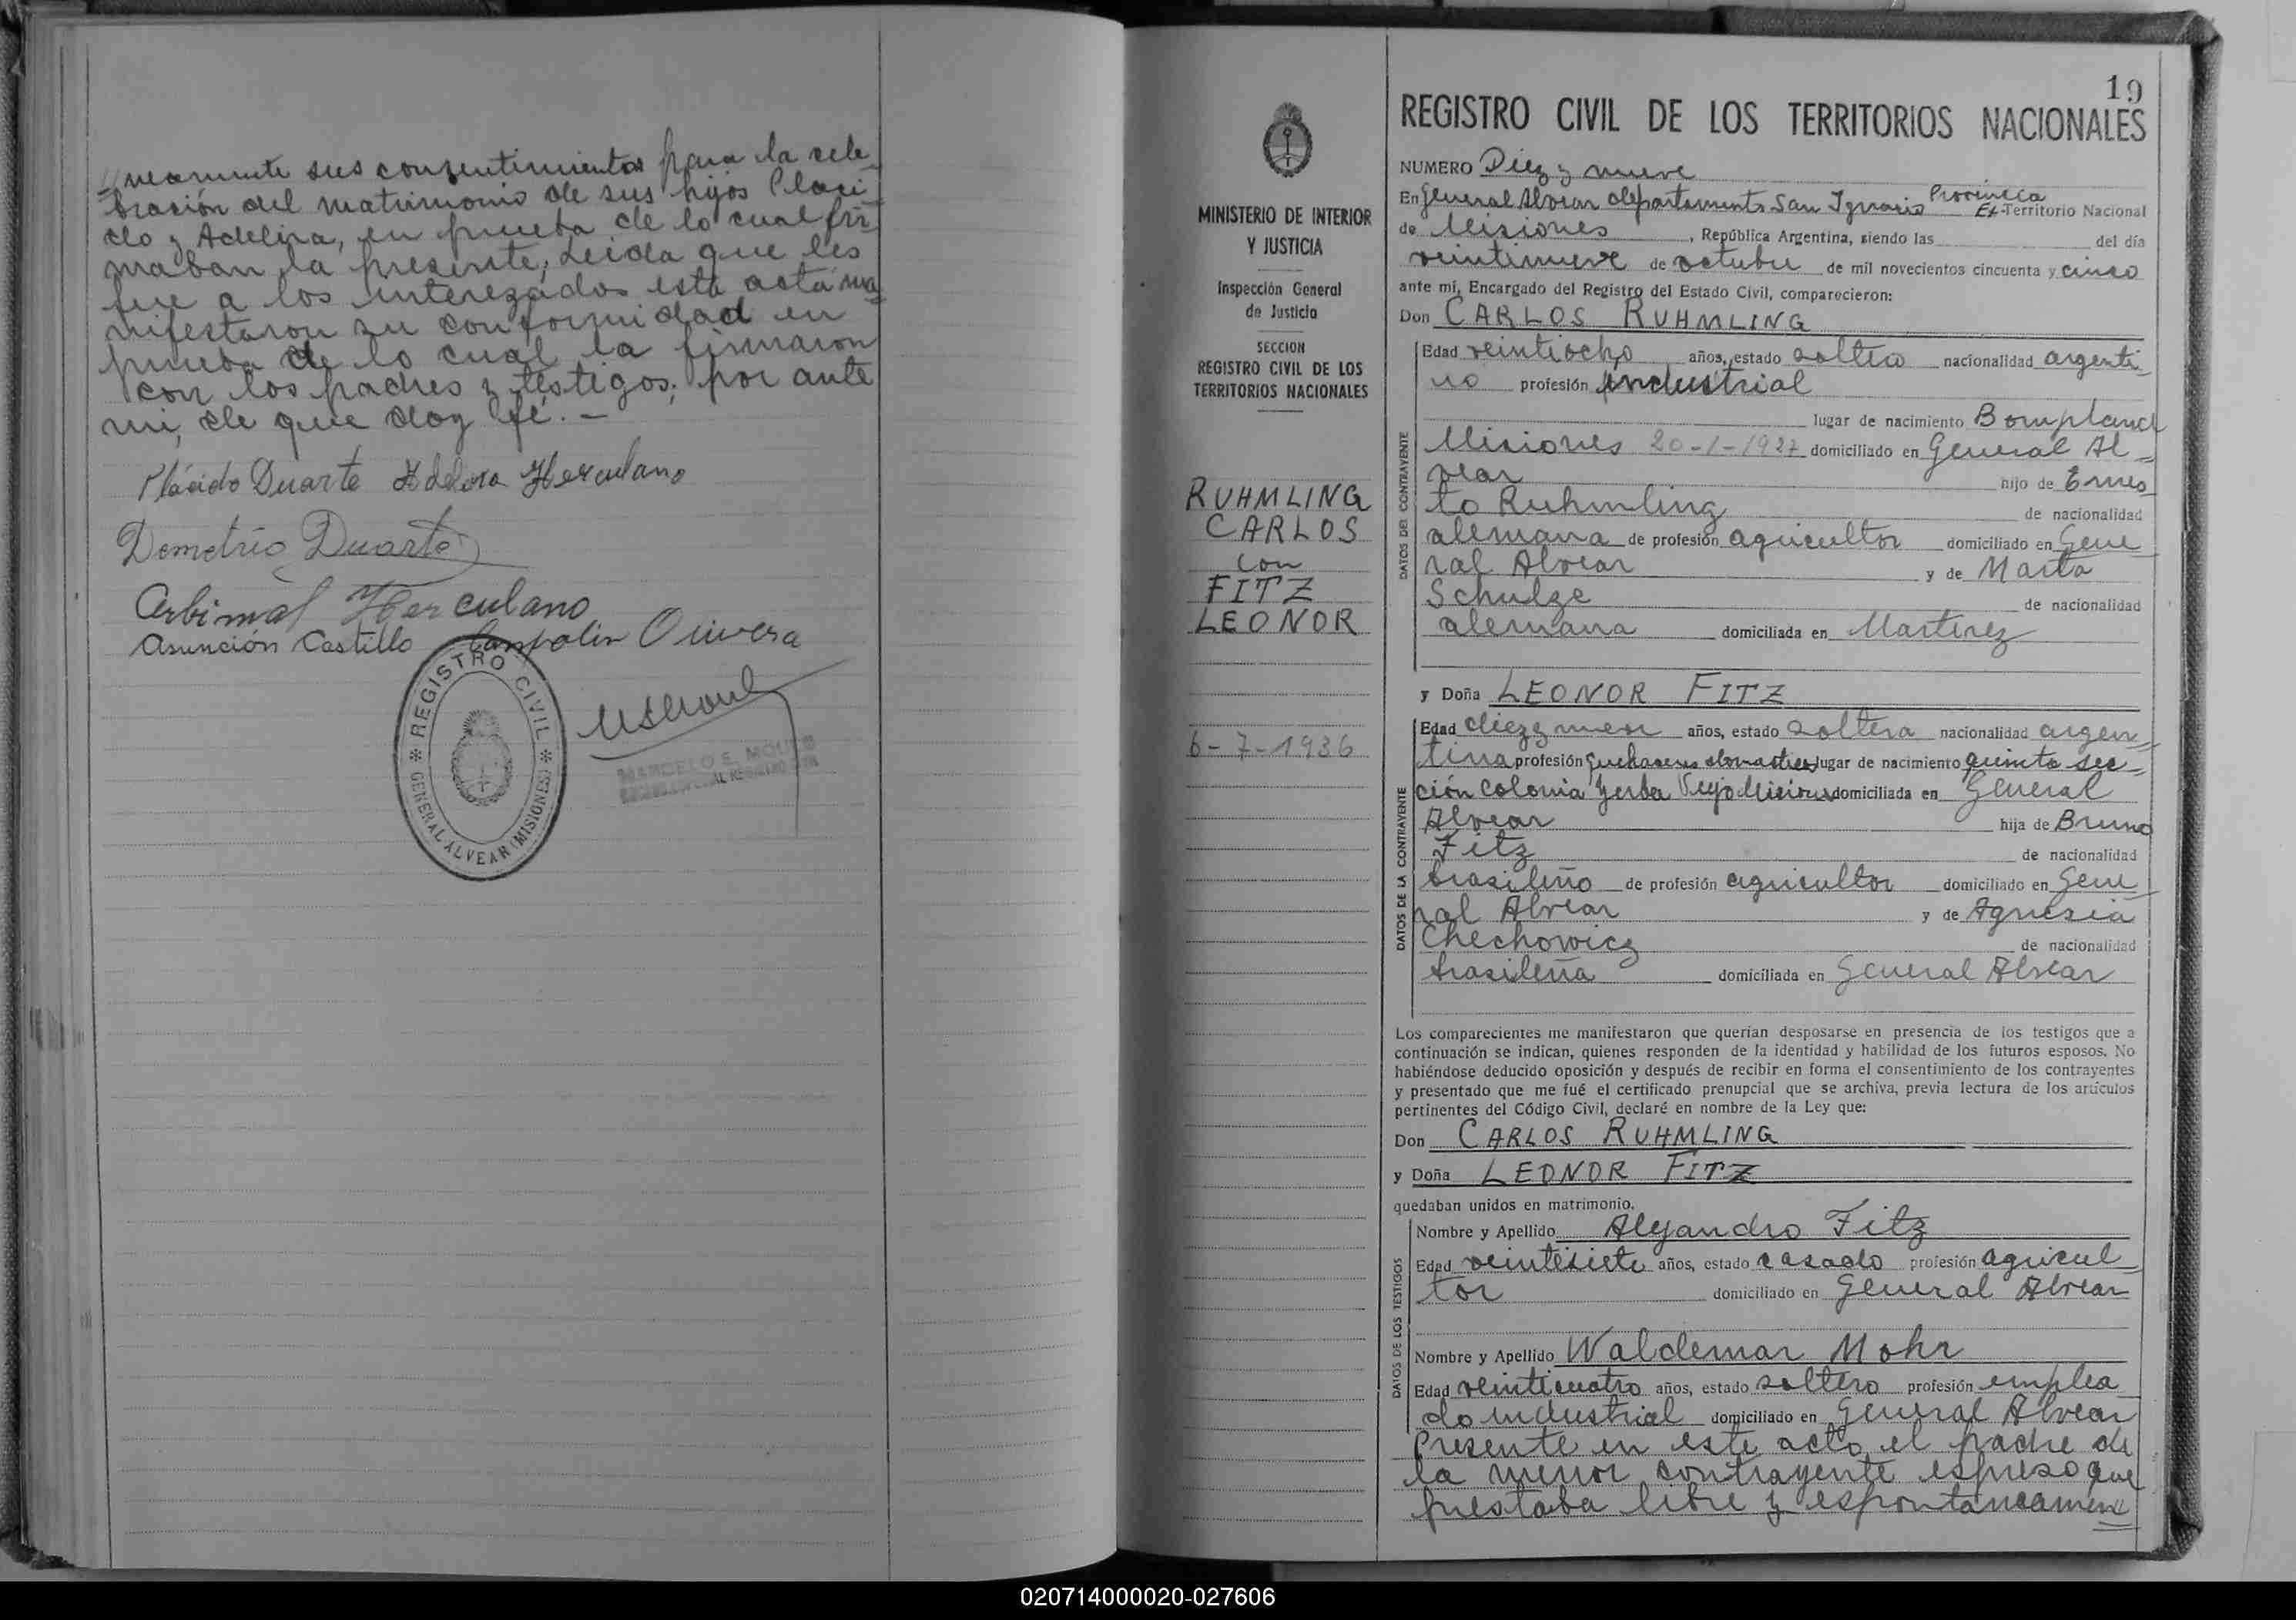 neamente sus consentimientos para la cele
bración del matrimonio de sus hijos Placi
do y Adelina, en prueba de lo cual fir
maban la presente; Leida que les
fue a los interezados esta acta ma
nifestaron su conformidad en
prueba de lo cual la firmaron
con los padres y testigos; por ante
mi, de que doy fé. -
Plácido Duarte Adelina Herculano
Demetrio Duarte
Herculano
Asunción Castillo Olivera
REGISTRO CIVIL
GENERAL ALVEAR (MISIONES)
MARCELO E.
19
REGISTRO CIVIL DE LOS TERRITORIOS NACIONALES
NUMERO Diez y nueve
En General Alvear departamento San Ignacio Provincia Ex-Territorio Nacional
de Misiones, República Argentina, siendo las del día
veintinueve de octubre de mil novecientos cincuenta y cinco
ante mí, Encargado del Registro del Estado Civil, comparecieron:
Don CARLOS RUHMLING
Edad veintiocho años, estado soltero nacionalidad argenti
no profesión industrial
lugar de nacimiento Bompland
Misiones 20-1-1927 domiciliado en General Al-
vear hijo de Ernes
to Ruhmling de nacionalidad
alemana de profesión agricultor domiciliado en Gene
ral Alvear y de Marta
Schulze de nacionalidad
alemana domiciliada en Martinez
DATOS DEL CONTRAYENTE
y Doña LEONOR FITZ
Edad diez y nueve años, estado soltera nacionalidad argen-
tina profesión quehaceres domesticos lugar de nacimiento quinta sec-
ción colonia Yerba Viejo Misiones domiciliada en General
Alvear hija de Bruno
Fitz de nacionalidad
brasileño de profesión agricultor domiciliado en Gene
ral Alvear y de Agnesia
Chechowicz de nacionalidad
brasileña domiciliada en General Alvear
DATOS DE LA CONTRAYENTE
Los comparecientes me manifestaron que querían desposarse en presencia de los testigos que a
continuación se indican, quienes responden de la identidad y habilidad de los futuros esposos. No
habiéndose deducido oposición y después de recibir en forma el consentimiento de los contrayentes
y presentado que me fué el certificado prenupcial que se archiva, previa lectura de los artículos
pertinentes del Código Civil, declaré en nombre de la Ley que:
Don CARLOS RUHMLING
y Doña LEONOR FITZ
quedaban unidos en matrimonio.
Nombre y Apellido Alejandro Fitz
Edad veintisiete años, estado casado profesión agricul
tor domiciliado en General Alvear
Nombre y Apellido Waldemar Mohr
Edad veinticuatro años, estado soltero profesión emplea
do industrial domiciliado en General Alvear
DATOS DE LOS TESTIGOS
Presente en este acto el padre de
la menor contrayente espreso que
prestaba libre y espontaneamen
MINISTERIO DE INTERIOR
Y JUSTICIA
Inspección General
de Justicia
SECCION
REGISTRO CIVIL DE LOS
TERRITORIOS NACIONALES
RUHMLING
CARLOS
con
FITZ
LEONOR
6-7-1936
020714000020-027606